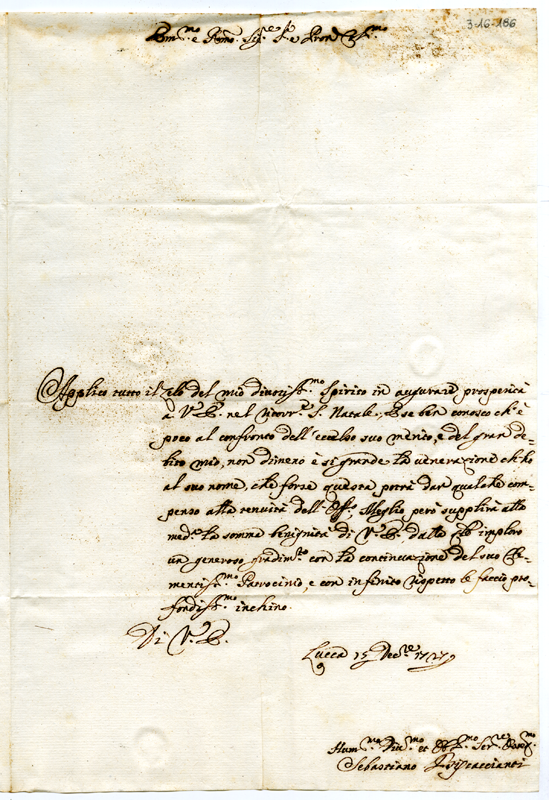 3-16-186
Em.mo e Rmo. Sig.re e Pron. C.mo
Applico tutto il zelo del mio divotiss.mo Spirito in augurare prosperità
à V.E. nel vicino S. Natale. E se ben conosco ch'è
poco al confronto dell'eccelso suo merito, e del gran de-
bito mio, non dimeno è si grande la venerazione ch'hò
al suo nome, che forse questa potrà dar qualche com-
penso alla tenuità dell'Off.o. Meglio però supplirà alla
med.a la somma benignità di V.E. dalla q.le imploro
un generoso gradim.to con la continuazione del suo Cle-
mentiss.mo Patrocinio, e con infinito rispetto le faccio pro-
fondiss.mo inchino.
Di V.E.
Lucca 15 Dec.re 1727
Hum.mo Div.mo et Obl.mo Ser.re
Sebastiano